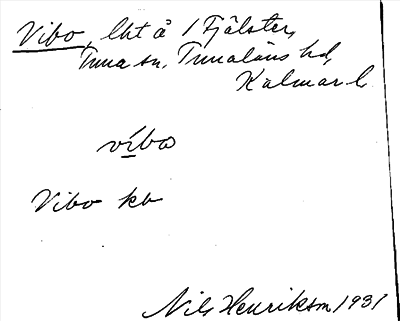 Vibo, lht å 1 Fjälster,
Tuna sn. Tunaläns hd,
Kalmar l.
víbo
Vibo kb
Nils Henrikson 1931